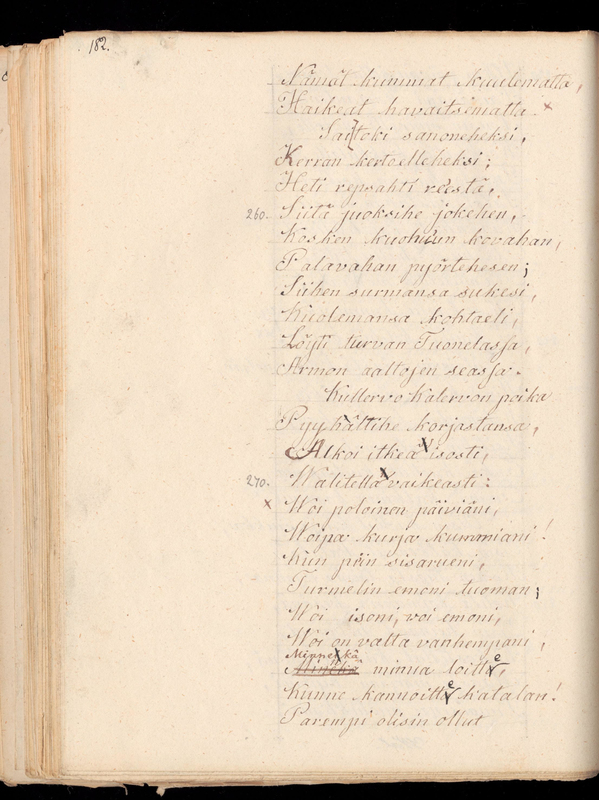 182.
Nämät kummat kuulematta,
Haikeat havaitsimatta
Sai toki sanoneheksi,
Kerran kertoelleheksi;
Heti repsahti reestä,
260. Siitä juoksihe jokehen,
Kosken kuohuun kovahan,
Palavahan pyörtehesen;
Siihen surmansa sukesi,
Kuolemansa kohtaeli,
Löyti turvan Tuonelassa,
Armon aaltojen seassa.
Kullervo Kalervon poika
Pyyhältihe korjastansa,
Alkoi itkeä isosti,
270. Walitella vaikeasti:
Woi poloinen päiviäni,
Woipa kurja kummiani!
Kun piin sisarueni,
Turmelin emoni tuoman;
Woi isoni, voi emoni,
Woi on valta vanhempani,
Minnekä
minua loitte,
Kunne kannoitte katalan!
Parempi olisin ollut